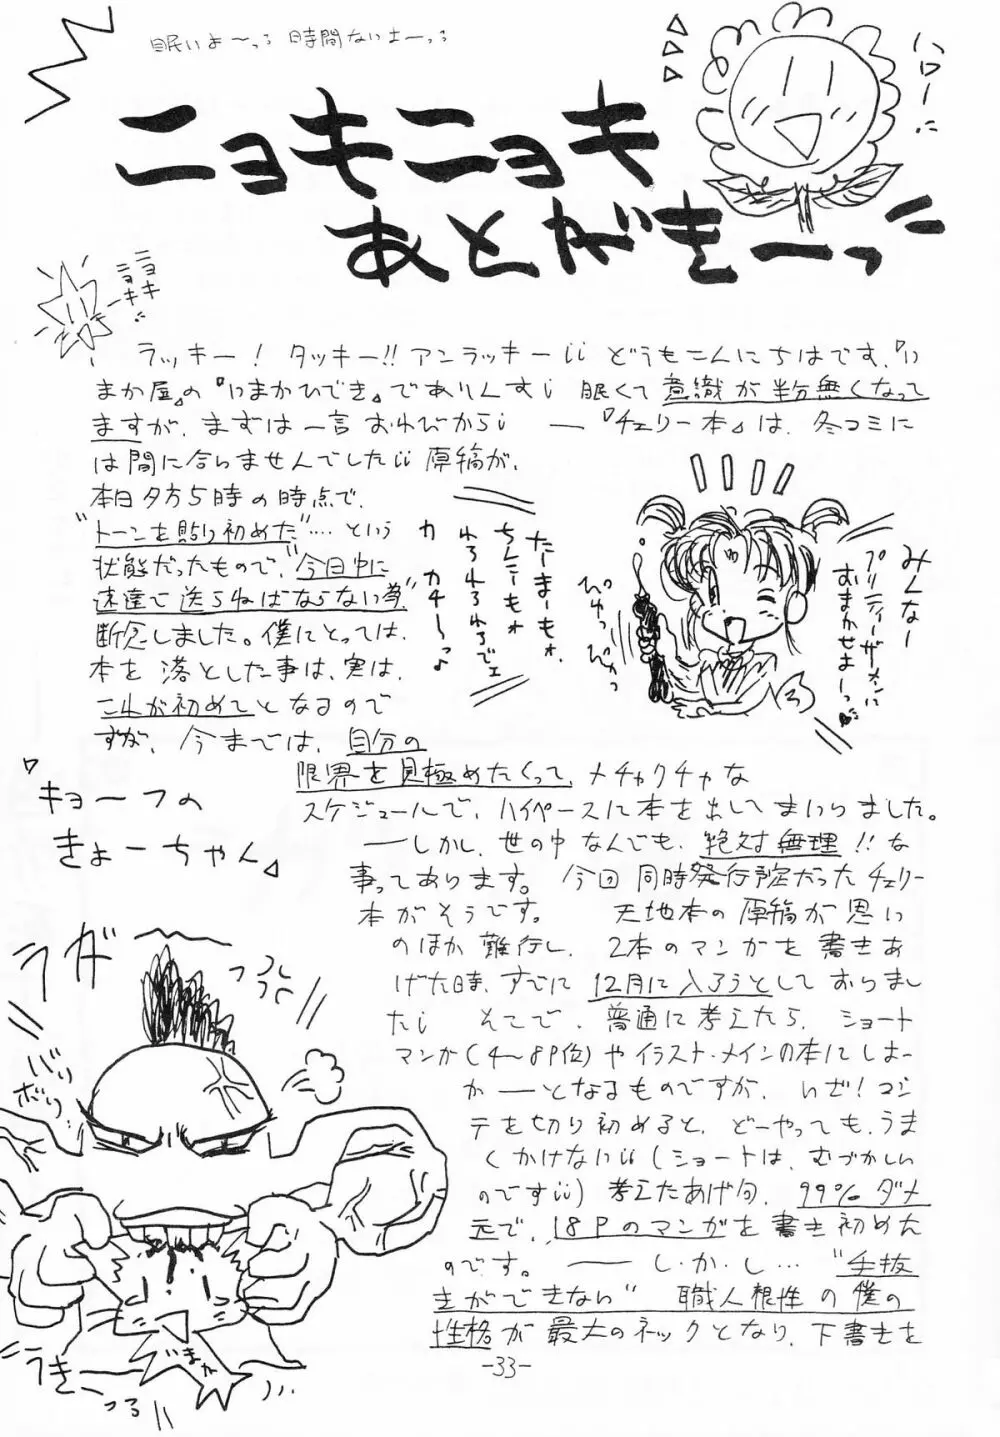 眠いよ〜っ 時間ないよーっ
ニョキニョキ
あとがきーっ
ハロー
ニョキ
ニョキ
ラッキー! タッキー!! アンラッキー¡¡ どうもこんにちはです、『い
まか屋』の『いまかひでき』でありんす¡ 眠くて意識が半分無くなって
ますが、まずは一言おわびから¡ ―『チェリー本』は、冬コミに
は間に合いませんでした¡¡ 原稿が、
本日夕方5時の時点で、
"トーンを貼り初めた"…という
状態だったもので、"今日中に
速達で送らねばならない為"
断念しました。僕にとっては、
本を落とした事は、実は、
これが初めてとなるので
すが、今までは、自分の
限界を見極めたくって、メチャクチャな
スケジュールで、ハイペースに本を出してまいりました。
―しかし、世の中なんでも、絶対無理!!な
事ってあります。今回同時発行予定だったチェリー
本がそうです。天地本の原稿が思い
のほか難行し、2本のマンガを書きあ
げた時、すでに12月に入ろうとしておりまし
た¡ そこで、普通に考えたら、ショート
マンガ(4〜8P位)やイラスト・メインの本にしよー
か―となるものですが、いざ!コンテ
テを切り初めると、どーやっても、うま
くかけない¡¡(ショートは、むづかしい
のです¡¡)考えたあげ句、99%ダメ
元で、18Pのマンガを書き初めた
のです。――し・か・し…"手抜
きができない"職人根性の僕の
性格が最大のネックとなり、下書きを
みんなー
プリティーザーメンに
おまかせよーっ
たーまーもォ
ちんこーもォ
われわれわれでェ
カ カチーっ♪
ぴゅっ
ぴゅっ
『キョーフの
きょーちゃん』
ウガーッ
バリ
ボリ
いまか
うきーっ
-33-